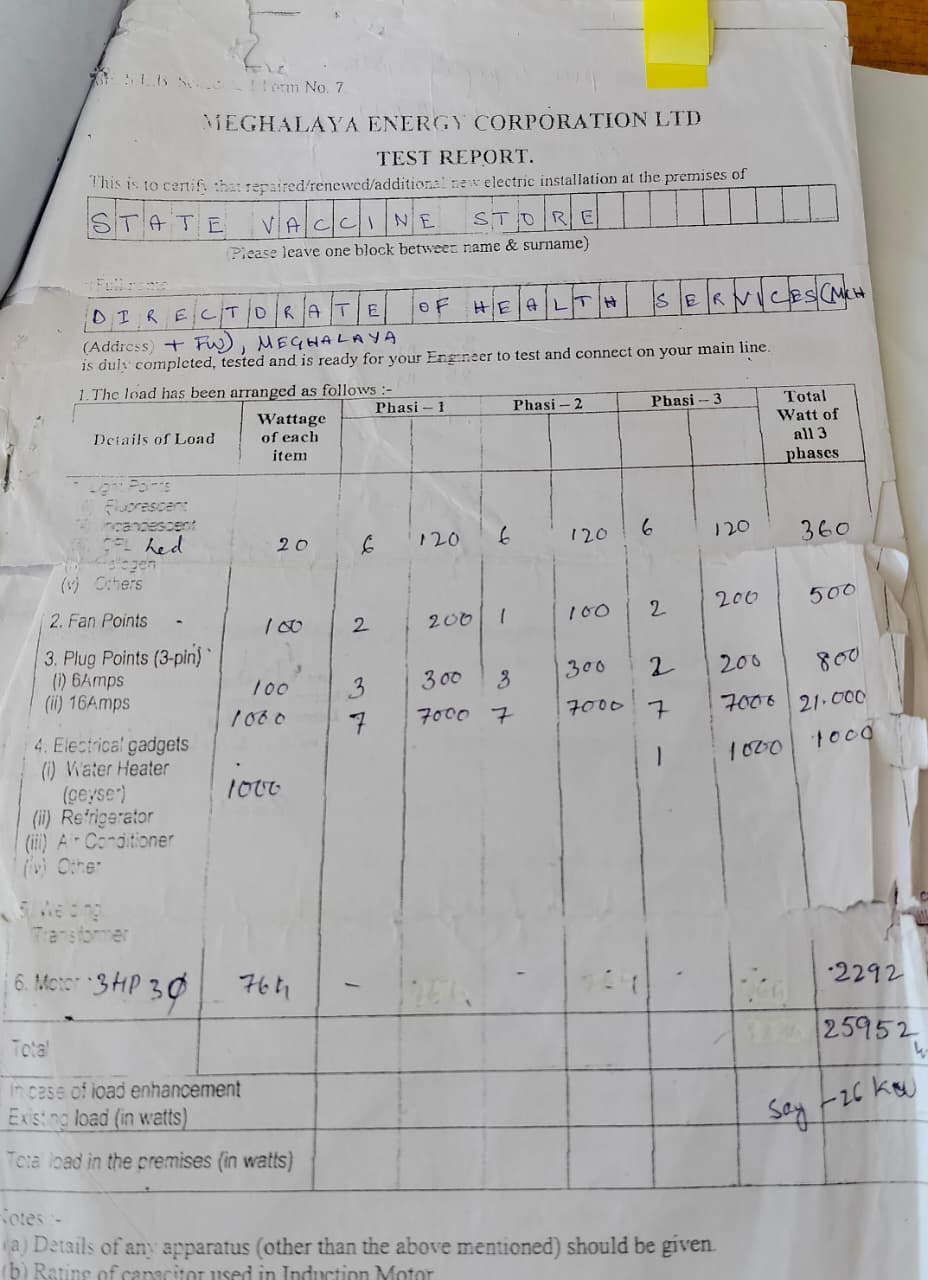 Form No. 7
MEGHALAYA ENERGY CORPORATION LTD
TEST REPORT.
This is to certify that repaired/renewed/additional new electric installation at the premises of
STATE VACCINE STORE
(Please leave one block between name & surname)
Full name
DIRECTORATE OF HEALTH SERVICES (MCH
(Address) + FW), MEGHALAYA
is duly completed, tested and is ready for your Engineer to test and connect on your main line.
1. The load has been arranged as follows :-
Details of Load Wattage of each item Phasi – 1 Phasi – 2 Phasi – 3 Total Watt of all 3 phases
Light Points
Fluorescent
Incandescent
CFL Led 20 6 120 6 120 6 120 360
(v) Others
2. Fan Points - 100 2 200 1 100 2 200 500
3. Plug Points (3-pin)
(i) 6Amps 100 3 300 3 300 2 200 800
(ii) 16Amps 1000 7 7000 7 7000 7 7000 21.000
4. Electrical gadgets
(i) Water Heater (geyser) 1000 1 1000 1000
(ii) Refrigerator
(iii) Air Conditioner
(iv) Other
5. Welding
Transformer
6. Motor 3HP 3Ø 764 - - - 2292
Total 25952 w
In case of load enhancement
Existing load (in watts) Say - 26 kw
Total load in the premises (in watts)
Notes :-
(a) Details of any apparatus (other than the above mentioned) should be given.
(b) Rating of capacitor used in Induction Motor